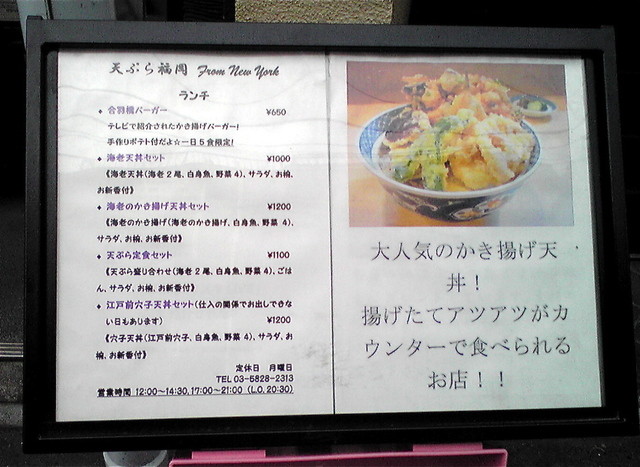 天ぷら福岡 From New York
ランチ
◆ 合羽橋バーガー ¥650
テレビで紹介されたかき揚げバーガー!
手作りポテト付だよ☆一日5食限定!
◆ 海老天丼セット ¥1000
《海老天丼(海老2尾、白身魚、野菜4)、サラダ、お椀、
お新香付》
◆ 海老のかき揚げ天丼セット ¥1200
《海老のかき揚げ(海老のかき揚げ、白身魚、野菜 4)、
サラダ、お椀、お新香付》
◆ 天ぷら定食セット ¥1100
《天ぷら盛り合わせ(海老2尾、白身魚、野菜4)、ごは
ん、サラダ、お椀、お新香付》
◆ 江戸前穴子天丼セット(仕入の関係でお出しできな
い日もあります) ¥1200
《穴子天丼(江戸前穴子、白身魚、野菜4)、サラダ、お
椀、お新香付》
定休日 月曜日
TEL 03-5828-2313
営業時間 12:00~14:30,17:00~21:00 (L.O. 20:30)
大人気のかき揚げ天
丼!
揚げたてアツアツがカ
ウンターで食べられる
お店!!